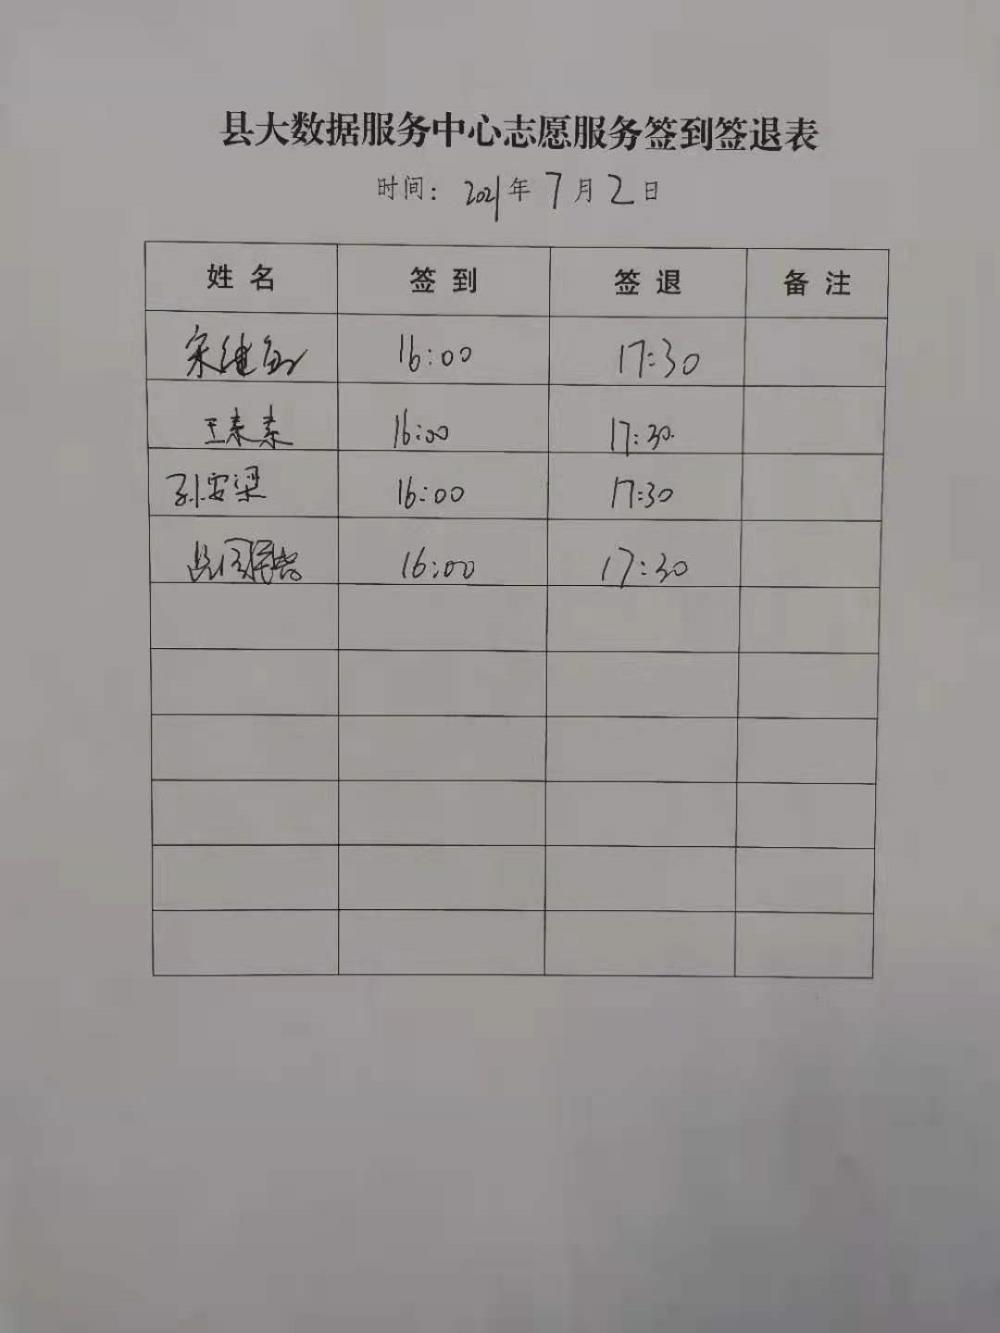 县大数据服务中心志愿服务签到签退表
时间: 2021年7月2日
姓名 签到 签退 备注
宋继 16:00 17:30
王素素 16:00 17:30
孙安梁 16:00 17:30
16:00 17:30